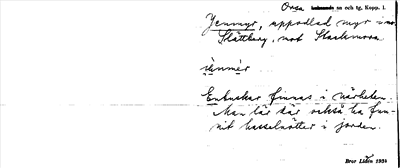 Orsa sn och tg. Kopp. l.
Jennmyr, uppodlad myr i no.
Slättberg, mot Stackmora.
Enbuskar finnas i närheten.
Man lär där också ha fun-
nit hasselnötter i jorden.
Bror Lidén 1934